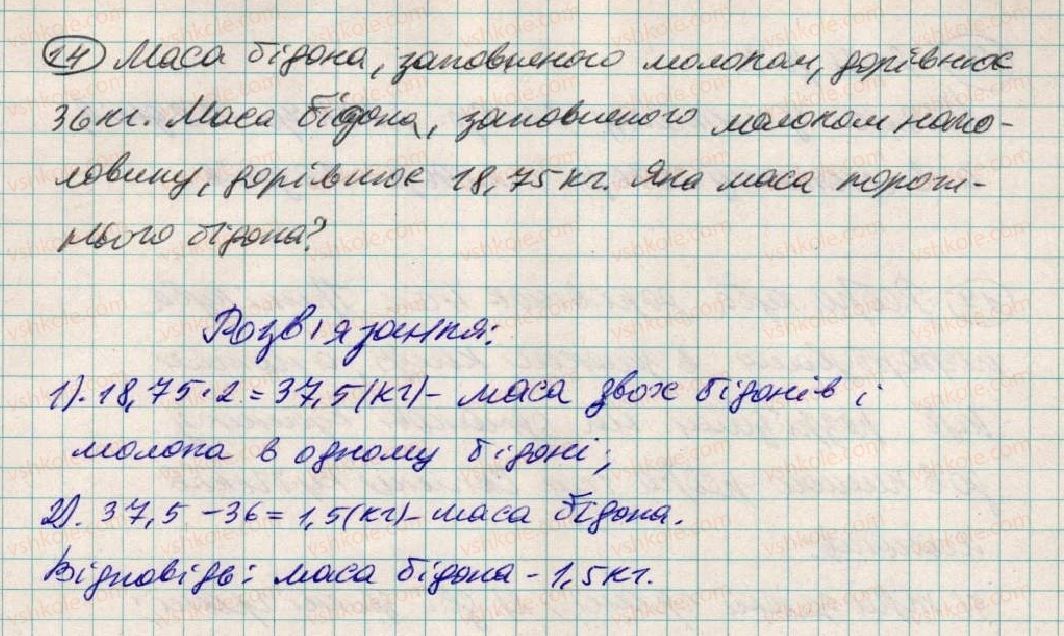 14 Маса бідона, заповненого молоком, дорівнює
36 кг. Маса бідона, заповненого молоком напо-
ловину, дорівнює 18,75 кг. Яка маса порож-
нього бідона?
Розв'язання:
1). 18,75·2 = 37,5 (кг) - маса двох бідонів і
молока в одному бідоні;
2). 37,5 - 36 = 1,5 (кг) - маса бідона.
Відповідь: маса бідона - 1,5 кг.